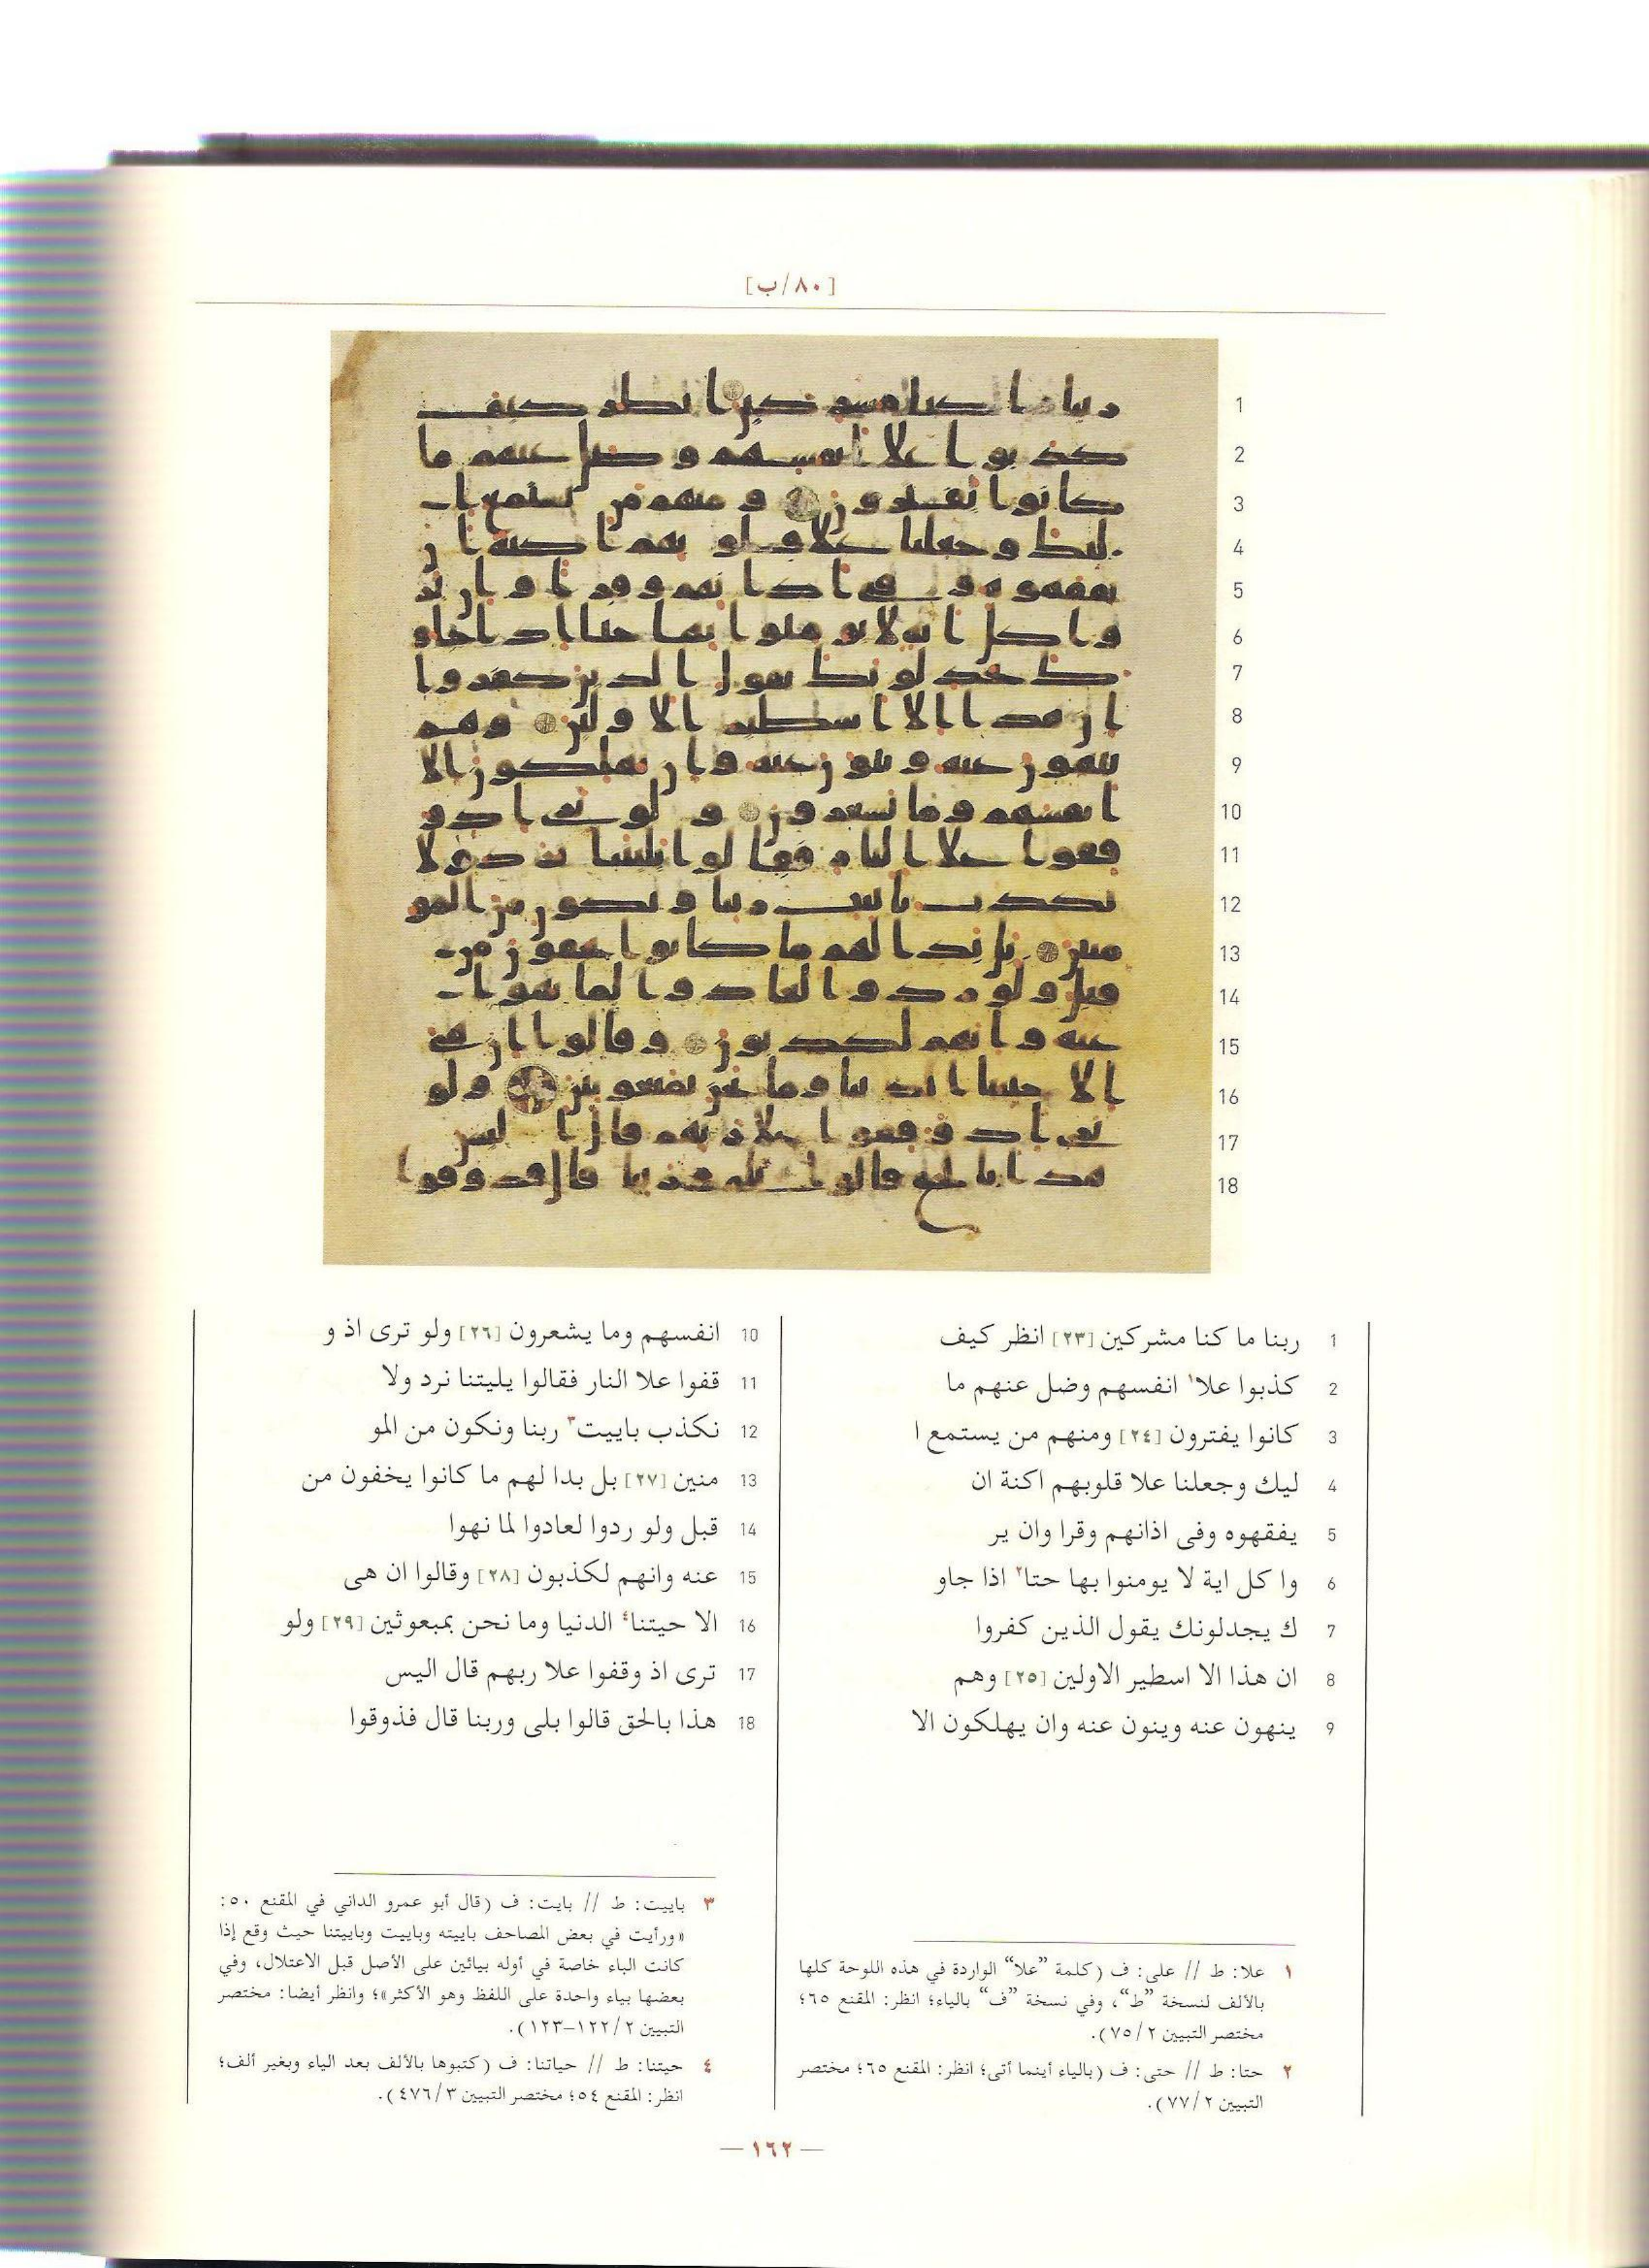 [٨٠/ب]
1 ربنا ما كنا مشركين [٢٣] انظر كيف
2 كذبوا علا١ انفسهم وضل عنهم ما
3 كانوا يفترون [٢٤] ومنهم من يستمع ا
4 ليك وجعلنا علا قلوبهم اكنة ان
5 يفقهوه وفى اذانهم وقرا وان ير
6 وا كل اية لا يومنوا بها حتا٢ اذا جاو
7 ك يجدلونك يقول الذين كفروا
8 ان هذا الا اسطير الاولين [٢٥] وهم
9 ينهون عنه وينون عنه وان يهلكون الا
10 انفسهم وما يشعرون [٢٦] ولو ترى اذ و
11 قفوا علا النار فقالوا يليتنا نرد ولا
12 نكذب باييت٣ ربنا ونكون من المو
13 منين [٢٧] بل بدا لهم ما كانوا يخفون من
14 قبل ولو ردوا لعادوا لما نهوا
15 عنه وانهم لكذبون [٢٨] وقالوا ان هى
16 الا حيتنا٤ الدنيا وما نحن بمبعوثين [٢٩] ولو
17 ترى اذ وقفوا علا ربهم قال اليس
18 هذا بالحق قالوا بلى وربنا قال فذوقوا
١ علا: ط // على: ف (كلمة ”علا“ الواردة في هذه اللوحة كلها
بالألف لنسخة ”ط“، وفي نسخة ”ف“ بالياء؛ انظر: المقنع ٦٥؛
مختصر التبيين ٧٥/٢).
٢ حتا: ط // حتى: ف (بالياء أينما أتى؛ انظر: المقنع ٦٥؛ مختصر
التبيين ٧٧/٢).
٣ باييت: ط // بايت: ف (قال أبو عمرو الداني في المقنع ٥٠:
«ورأيت في بعض المصاحف باييته وباييت وباييتنا حيث وقع إذا
كانت الباء خاصة في أوله بيائين على الأصل قبل الاعتلال، وفي
بعضها بياء واحدة على اللفظ وهو الأكثر»؛ وانظر أيضا: مختصر
التبيين ١٢٢/٢–١٢٣).
٤ حيتنا: ط // حياتنا: ف (كتبوها بالألف بعد الياء وبغير ألف؛
انظر: المقنع ٥٤؛ مختصر التبيين ٤٧٦/٣).
— ١٦٢ —